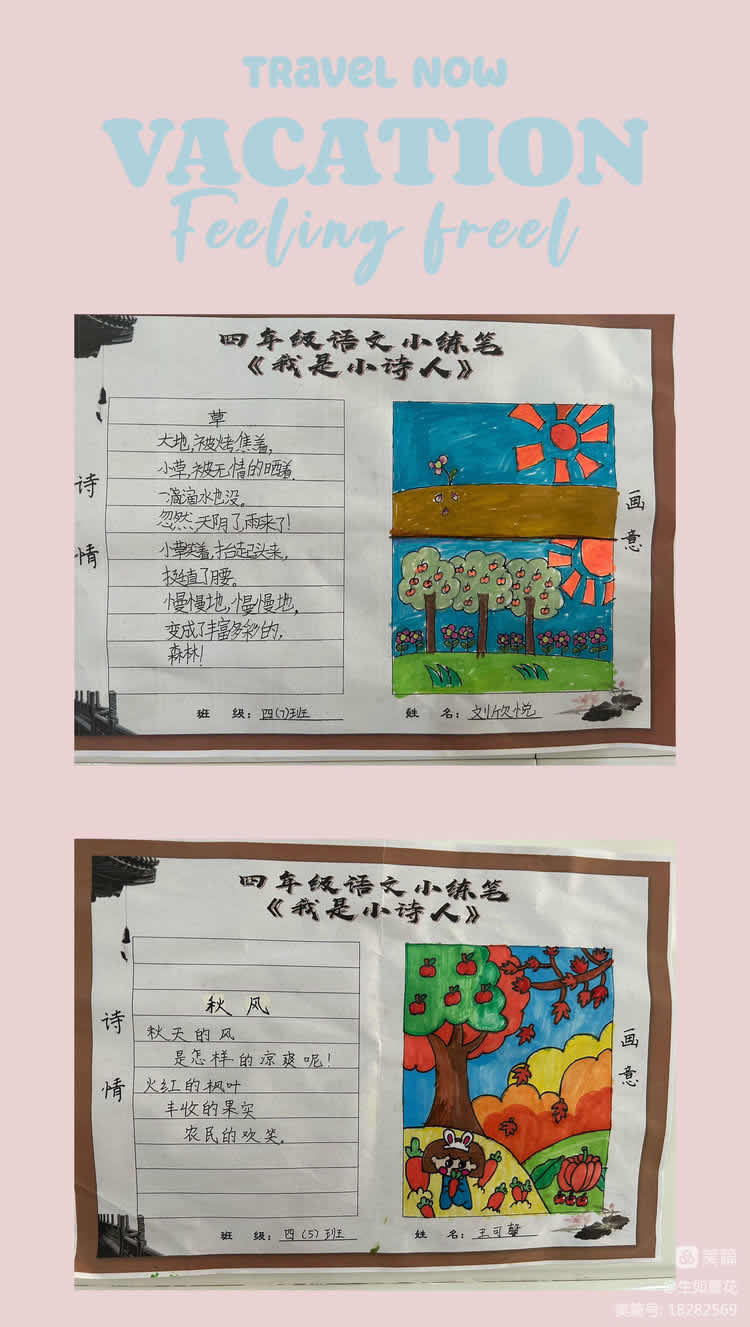 TRAVEL NOW
VACATION
Feeling freel
四年级语文小练笔
《我是小诗人》
诗情
草
大地,被烤焦着,
小草,被无情的晒着.
一滴滴水也没。
忽然,天阴了,雨来了!
小草笑着,抬起头来,
挺直了腰。
慢慢地,慢慢地,
变成了丰富多彩的,
森林!
画意
班 级: 四(7)班
姓 名: 刘欣悦
四年级语文小练笔
《我是小诗人》
诗情
秋风
秋天的风
是怎样的凉爽呢!
火红的枫叶
丰收的果实
农民的欢笑。
画意
班 级: 四(5)班
姓 名: 王可馨
美篇
@生如夏花
美篇号: 18282569